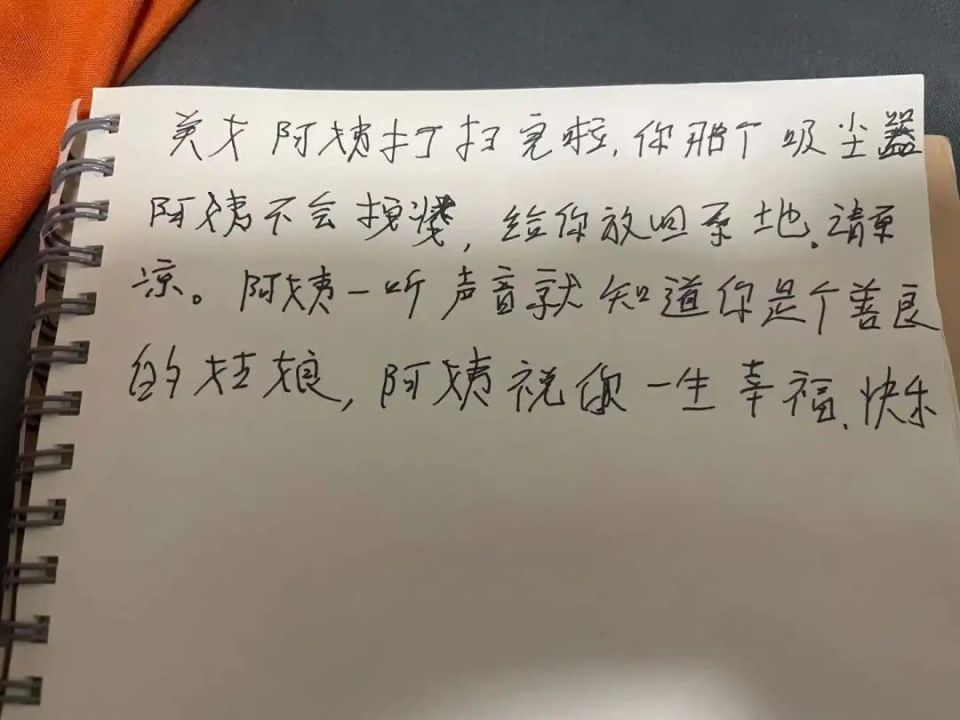 美才阿姨打扫完啦,你那个吸尘器
阿姨不会换，给你放回原地.请原
凉。阿姨一听声音就知道你是个善良
的姑娘，阿姨祝你一生幸福.快乐